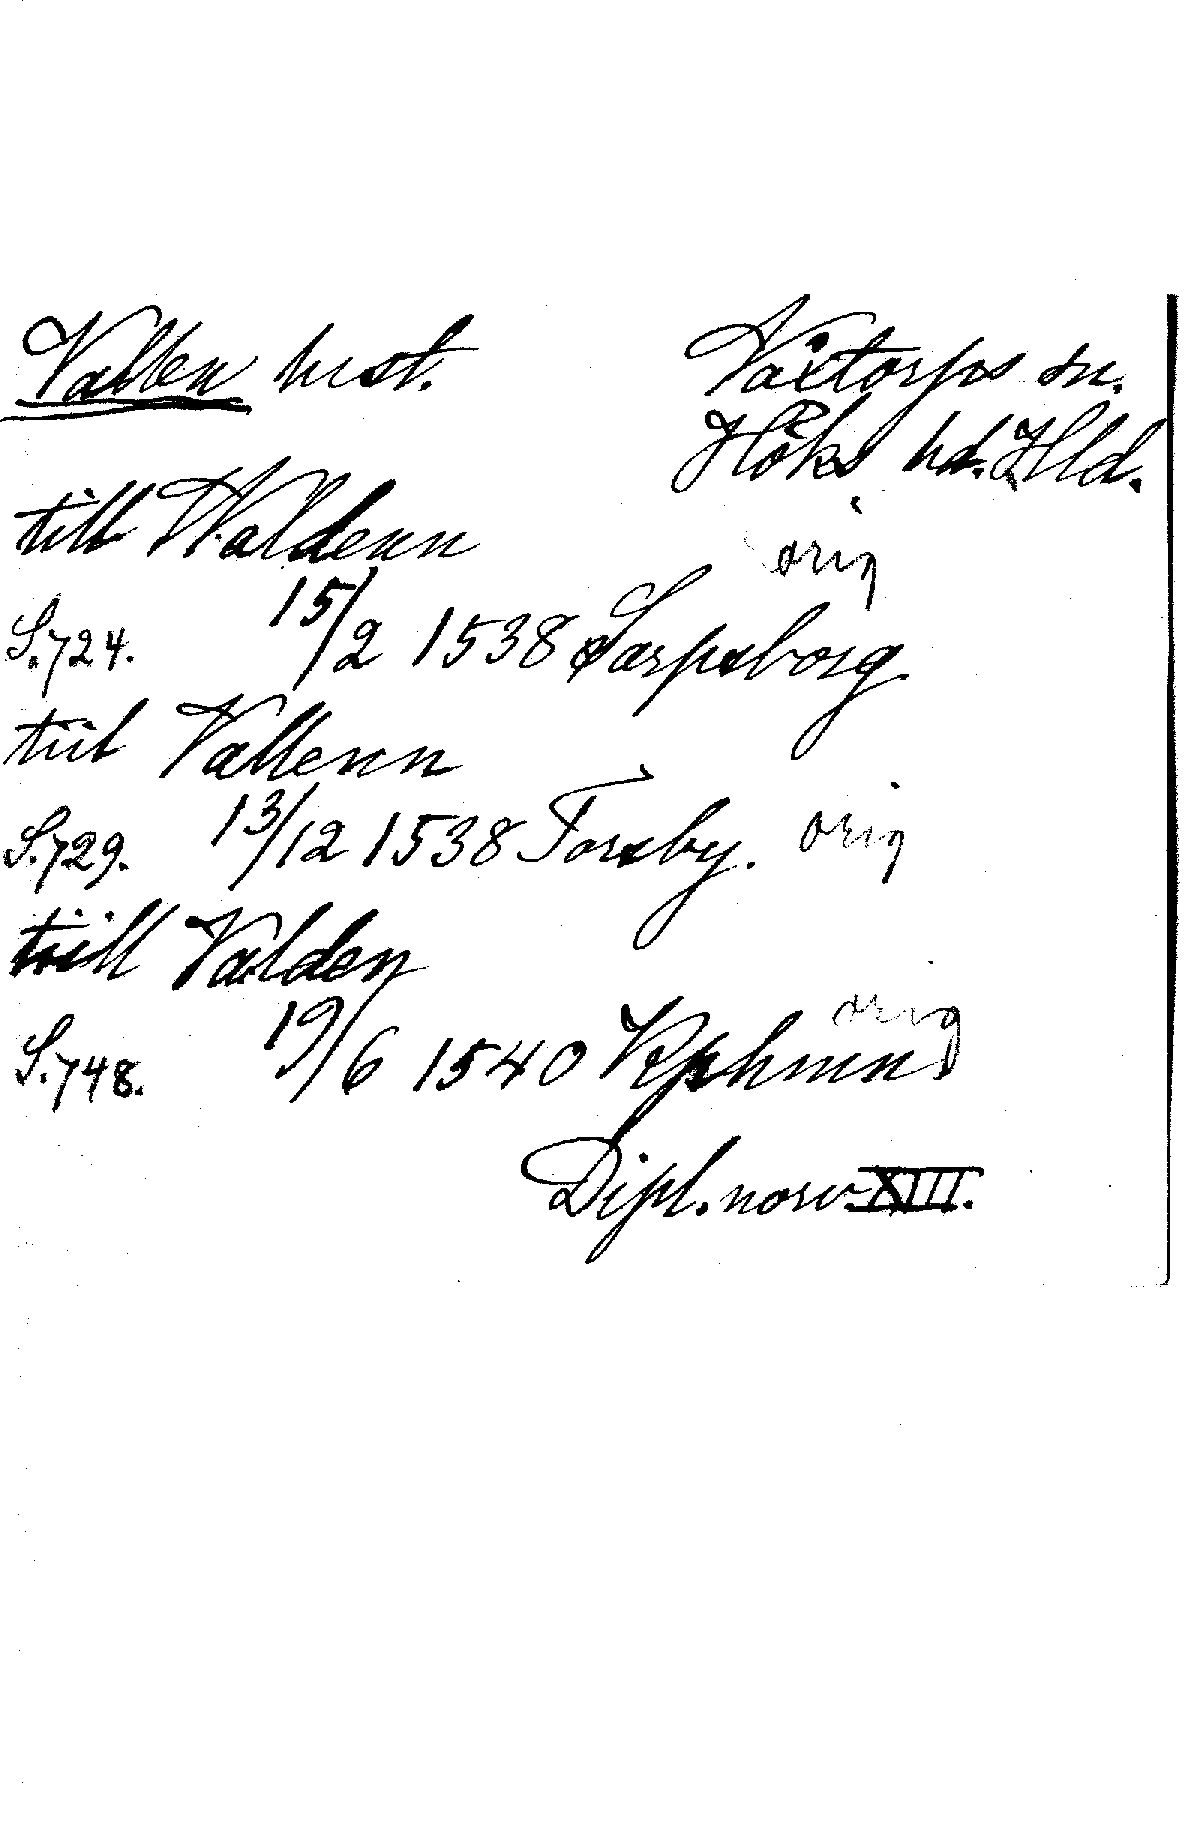 Vallen hrst. Växtorps sn.
Höks hd. Hld.
till Waldenn orig
S. 724. 15/2 1538 Sarpsborg
tiil Vallenn
S. 729. 13/12 1538 Forsby. orig
till Valden
S. 748. 19/6 1540 Kphmn orig
Dipl. norv. XIII.